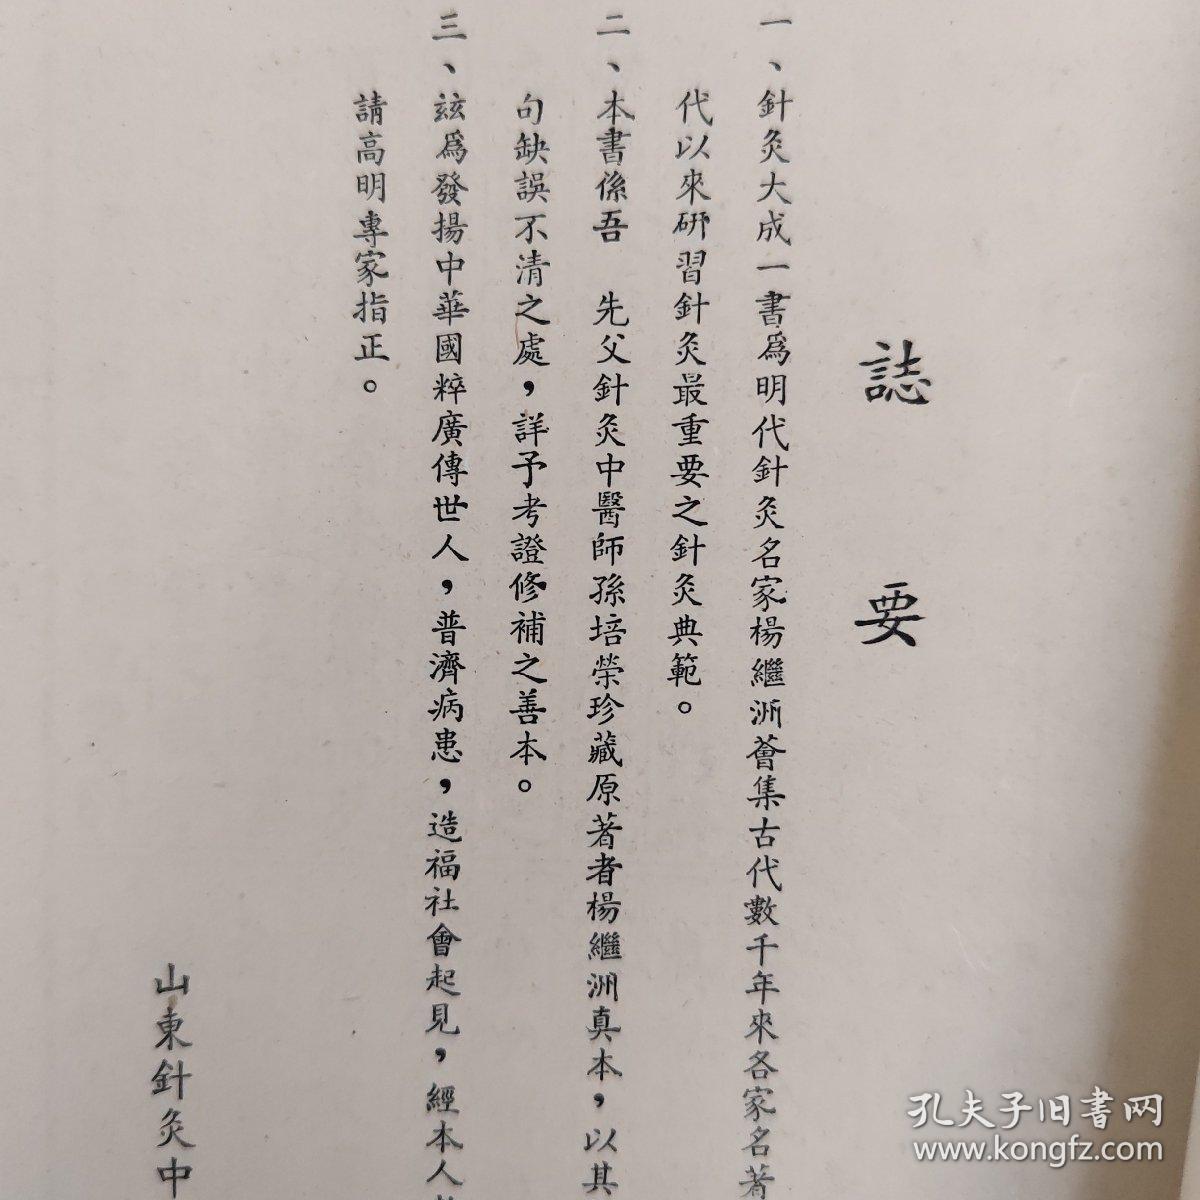 誌要
一、針灸大成一書為明代針灸名家楊繼洲薈集古代數千年來各家名著
代以來研習針灸最重要之針灸典範。
二、本書係吾　先父針灸中醫師孫培榮珍藏原著者楊繼洲真本，以其
句缺誤不清之處，詳予考證修補之善本。
三、玆為發揚中華國粹廣傳世人，普濟病患，造福社會起見，經本人
請高明專家指正。
山東針灸中
孔夫子旧书网
www.kongfz.com